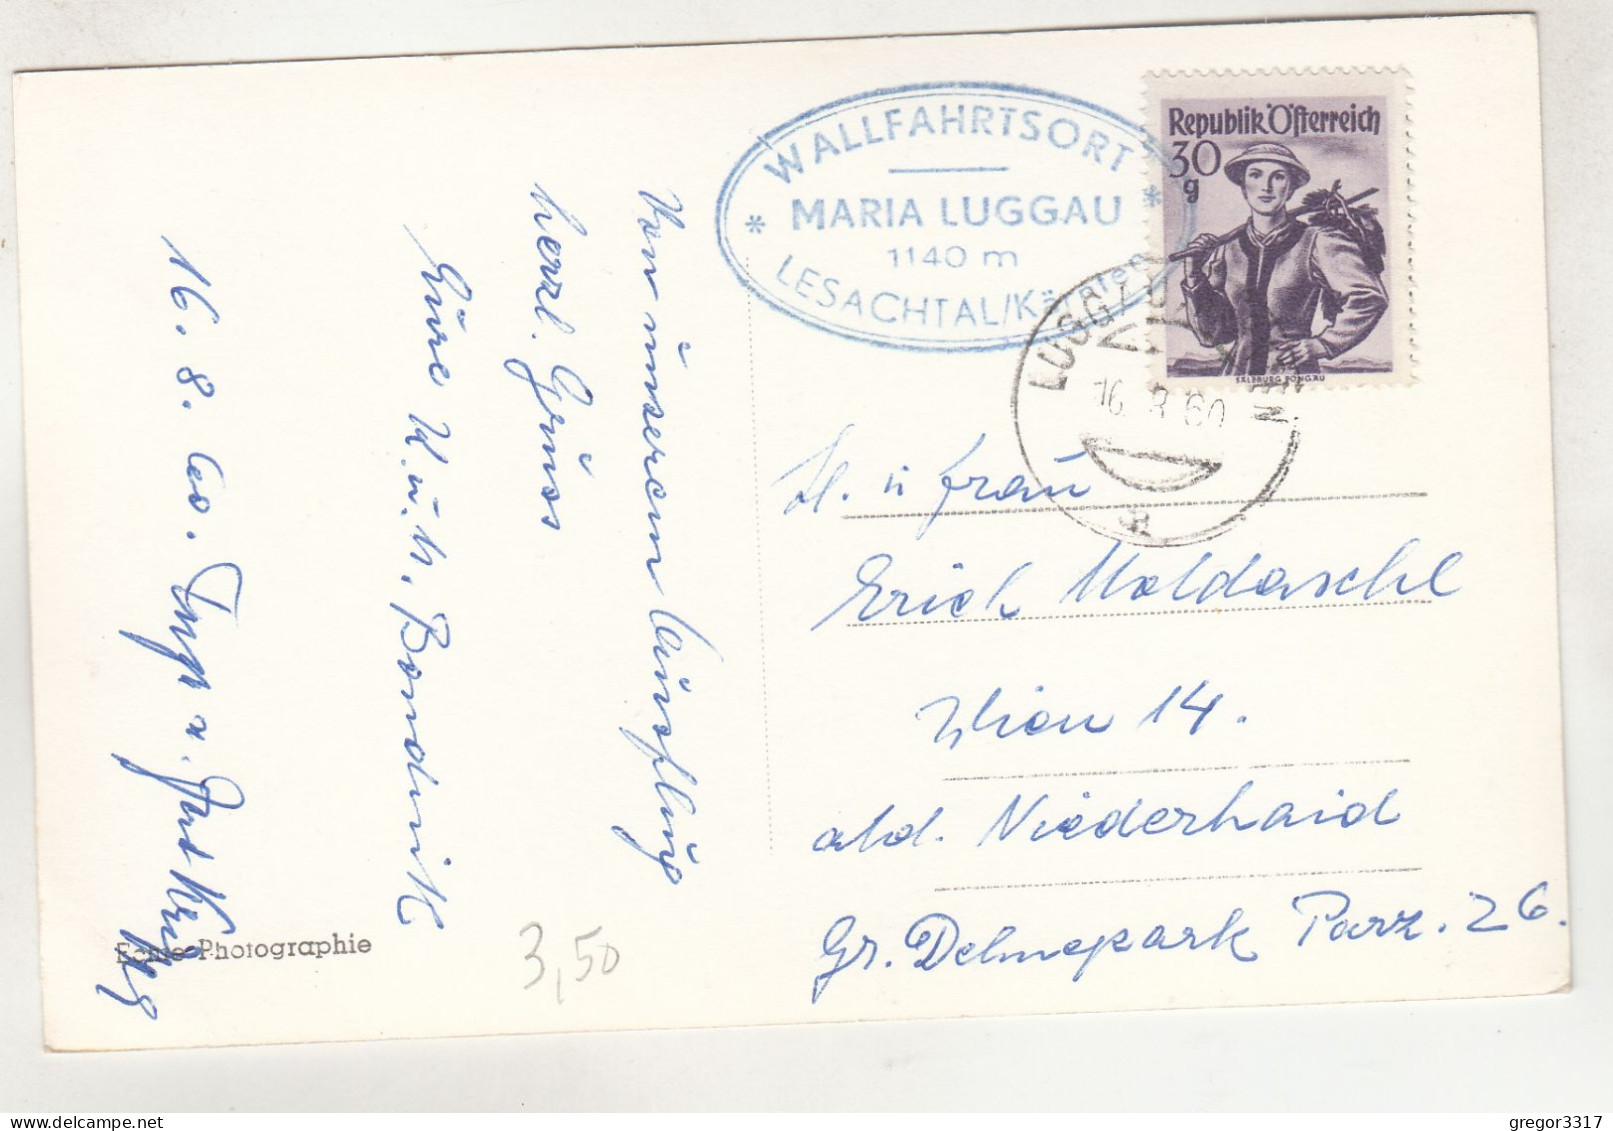 WALLFAHRTSORT
* MARIA LUGGAU *
1140 m
LESACHTAL/Kärnten
Republik Österreich
30
g
SALZBURG PONGAU
16. 8. 60
Von unserem Ausflug
herzl. Grüss
Eure
16. 8. 60.
H. u Frau
Erich Moldaschl
Wien 14.
abd. Niederhaid
Gr. Delmepark Parz. 26.
Echte Photographie
3,50
gregor3317